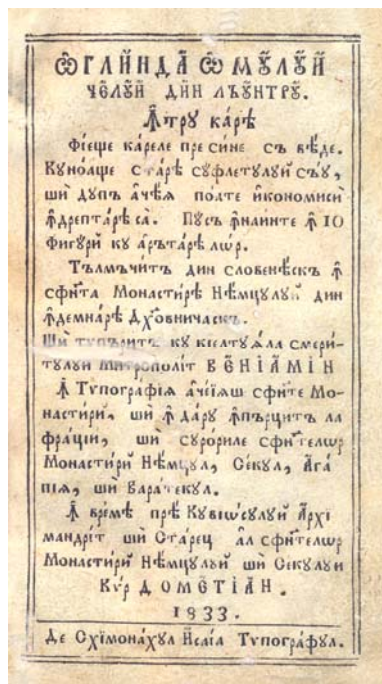 Ѽглѝнда̀ ѽмꙋ́лꙋй
че́лꙋй дин лъꙋ́нтрꙋ.
Ꙟтрꙋ ка́ре
Фїеще ка́реле пре сине съ ве́де.
Кꙋно́аще ста́рѣ сꙋ́флетꙋлꙋй съꙋ,
шѝ дꙋпъ аче́ѧ по́ате йкономисѝ
ꙟдрепта́рѣ са̀. Пꙋсъ ꙟнаинте ꙟ 10
фигꙋрѝ кꙋ а҆ръта́рѣ лѡ́р.
Тълмъчи́тъ дин словене́скъ ꙟ
сфи́нта Монасти́ре Нѣ́мцꙋлꙋй дин
ꙟдемна́рѣ Дх҃овничаскъ.
Шѝ тѵпъри́тъ кꙋ келтꙋѧ́ла смери́-
тꙋлꙋй Митропо́лїт ВЕНЇАМЍН
Ꙟ Тѵпогра́фїѧ аче́їѧш сфи́те Мо-
насти́рй, шѝ ꙟ да́рꙋ ꙟпърци́тъ ла
фра́ций, шѝ сꙋро́риле сфи́телѡр
Монасти́рй Нѣ́мцꙋл, Се́кꙋл, А҆га́
пїѧ, шѝ Вара́текꙋл.
Ꙟ вре́мѣ пре́ Кꙋвїѡ́сꙋлꙋй А҆рхї
мандри́т шѝ Ста́рец а҆л сфи́телѡр
Монасти́рй Нѣ́мцꙋлꙋй шѝ Секꙋлꙋй
Кѵ́р ДОМЕТЇА́Н.
1833.
Де Схїмона́хꙋл И҆са́їа Тѵпогра́фꙋл.